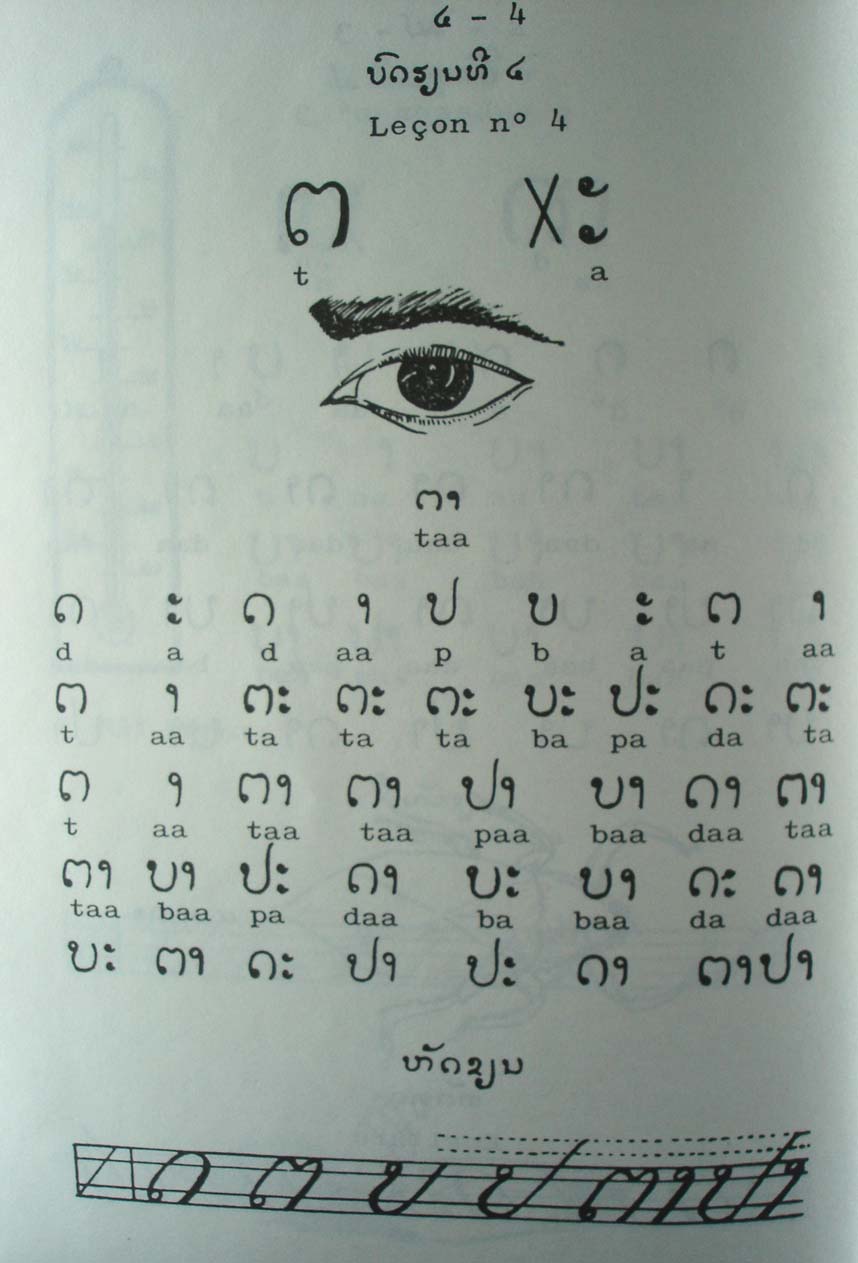 ໔ - 4
ບົດຮຽນທີ ໔
Leçon nº 4
ຕ Xະ
t a
ຕາ
taa
ດ ະ ດ າ ປ ບ ະ ຕ າ
d a d aa p b a t aa
ຕ າ ຕະ ຕະ ຕະ ບະ ປະ ດະ ຕະ
t aa ta ta ta ba pa da ta
ຕ າ ຕາ ຕາ ປາ ບາ ດາ ຕາ
t aa taa taa paa baa daa taa
ຕາ ບາ ປະ ດາ ບະ ບາ ດະ ດາ
taa baa pa daa ba baa da daa
ບະ ຕາ ດະ ປາ ປະ ດາ ຕາປາ
ຫັດຂຽນ
ດ ຕ ບ ປ ຕາປາ